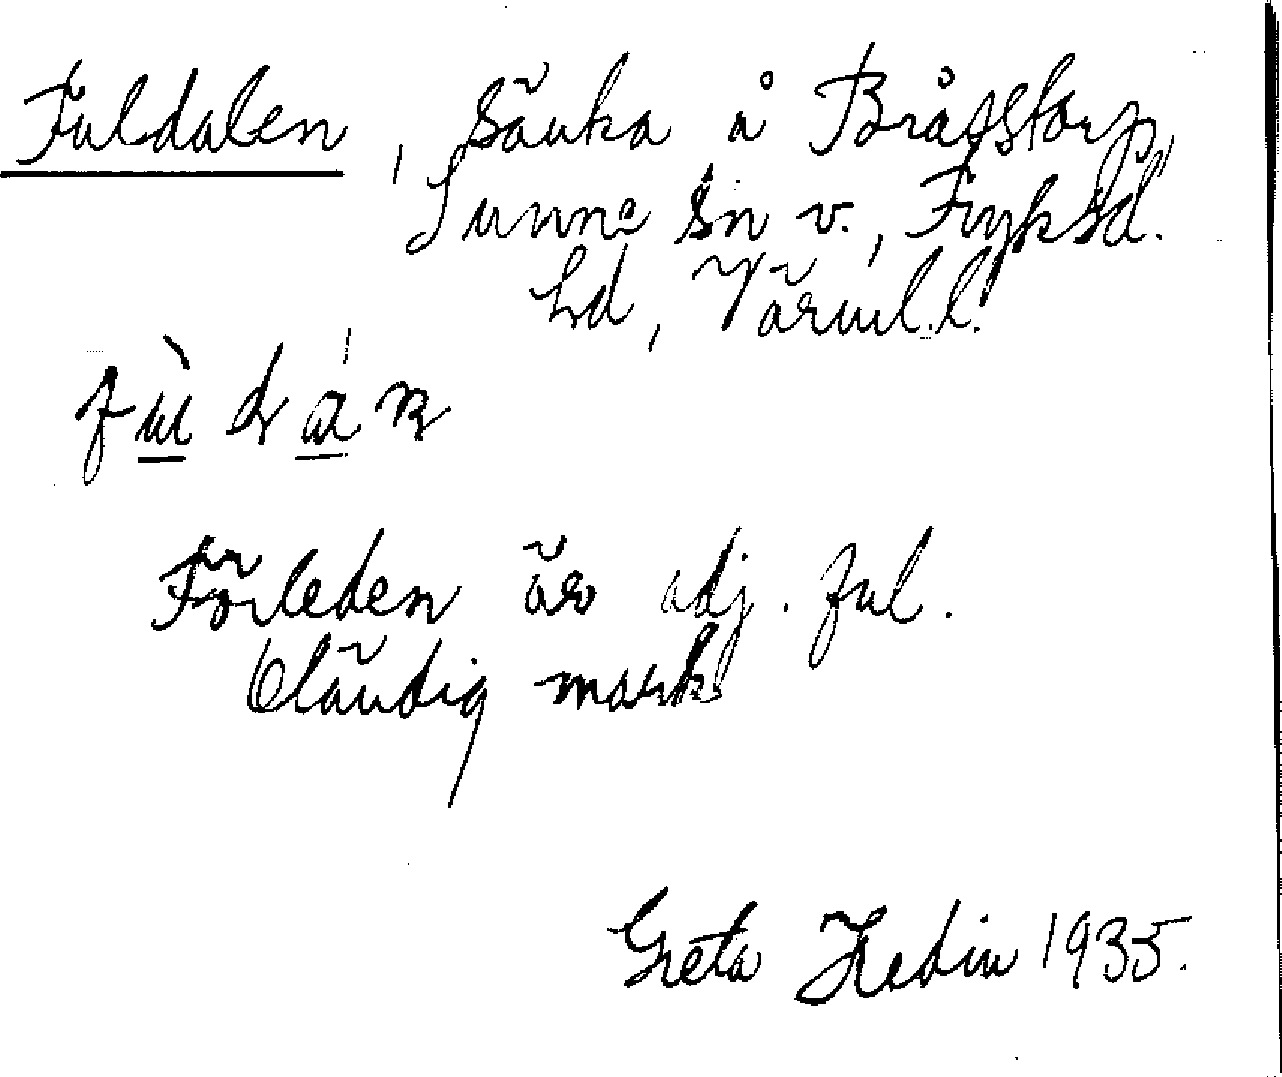 Fuldalen, Sänka å Bråtstorp,
Sunne sn v., Fryksd.
hd, Värml. l.
Förleden är adj. ful.
Eländig mark
Greta Hedin 1935.